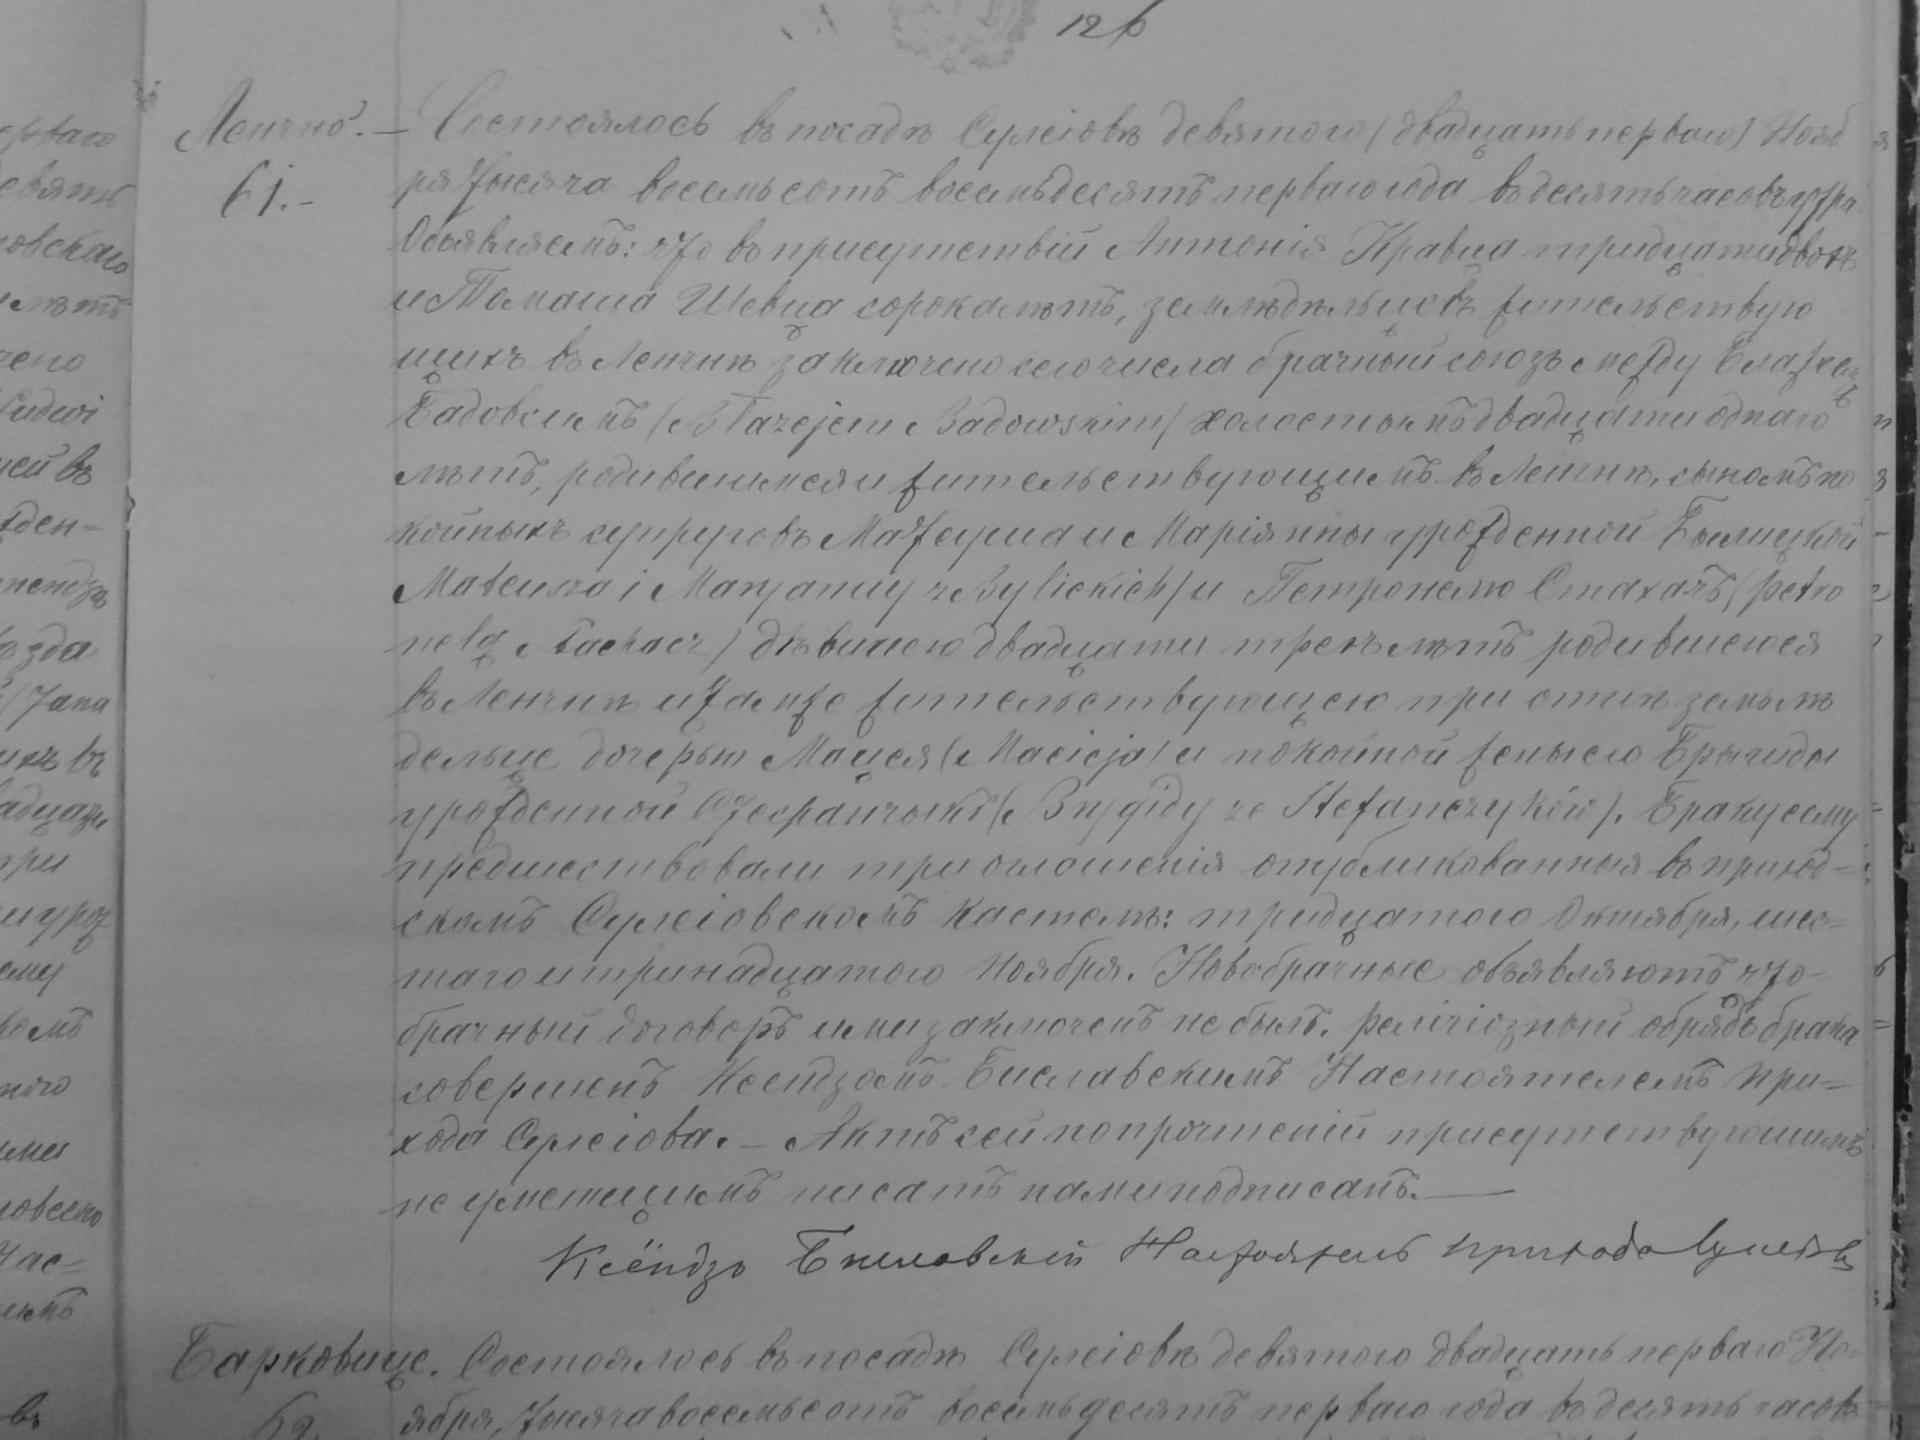 126
Ленчно. — Состоялось въ посадѣ Сулеіовѣ девятого (двадцать первого) Нояб
61.- ря тысяча восемьсотъ восемьдесятъ первого года въ десять часовъ утра
Объявляемъ: что въ присутствіи Антонія Кравца тридцати двохъ
и Томаша Шевца сорока лѣтъ, земледѣльцевъ жительствую
щихъ въ Ленчнѣ заключено сего числа брачный союзъ между Блажеемъ
Бадовскимъ (Błażejem Badowskim) холостымъ двадцати одного
лѣтъ, родившимся и жительствующимъ въ Ленчнѣ, сыномъ по
койныхъ супруговъ Матеуша и Маріянны урожденной Былицкой
Mateusza i Maryanny z Bylickich) и Петронелю Стахачъ (Petro
nelą Stachacz) дѣвицею двадцати трехъ лѣтъ родившеюся
въ Ленчнѣ и тамже жительствующею при отцѣ землѣ
дельце дочерью Мацея (Macieja) и покойной жены его Брыгиды
урожденной Стефанчыкъ (Brygidy ze Stefanczyków). Браку сему
предшествовали три оглошенія опубликованныя въ приход=
скомъ Сулеіовскомъ костелѣ: тридцатого Октября, шес=
таго и тринадцатого Ноября. Новобрачные объявляютъ что=
брачный договоръ ими заключенъ не былъ. Религіозный обрядъ брака
совершенъ Ксендзомъ Настоятелемъ при=
хода Сулеіова. — Актъ сей по прочтеніи присутствующимъ
не умеющимъ писать нами подписанъ. —
Ксёндзъ Настоятель прихода Сулеіовъ
Барковице. Состоялось въ посадѣ Сулеіовѣ девятого двадцать первого Но=
62. ября, тысяча восемьсотъ восемьдесятъ первого года въ десять часовъ